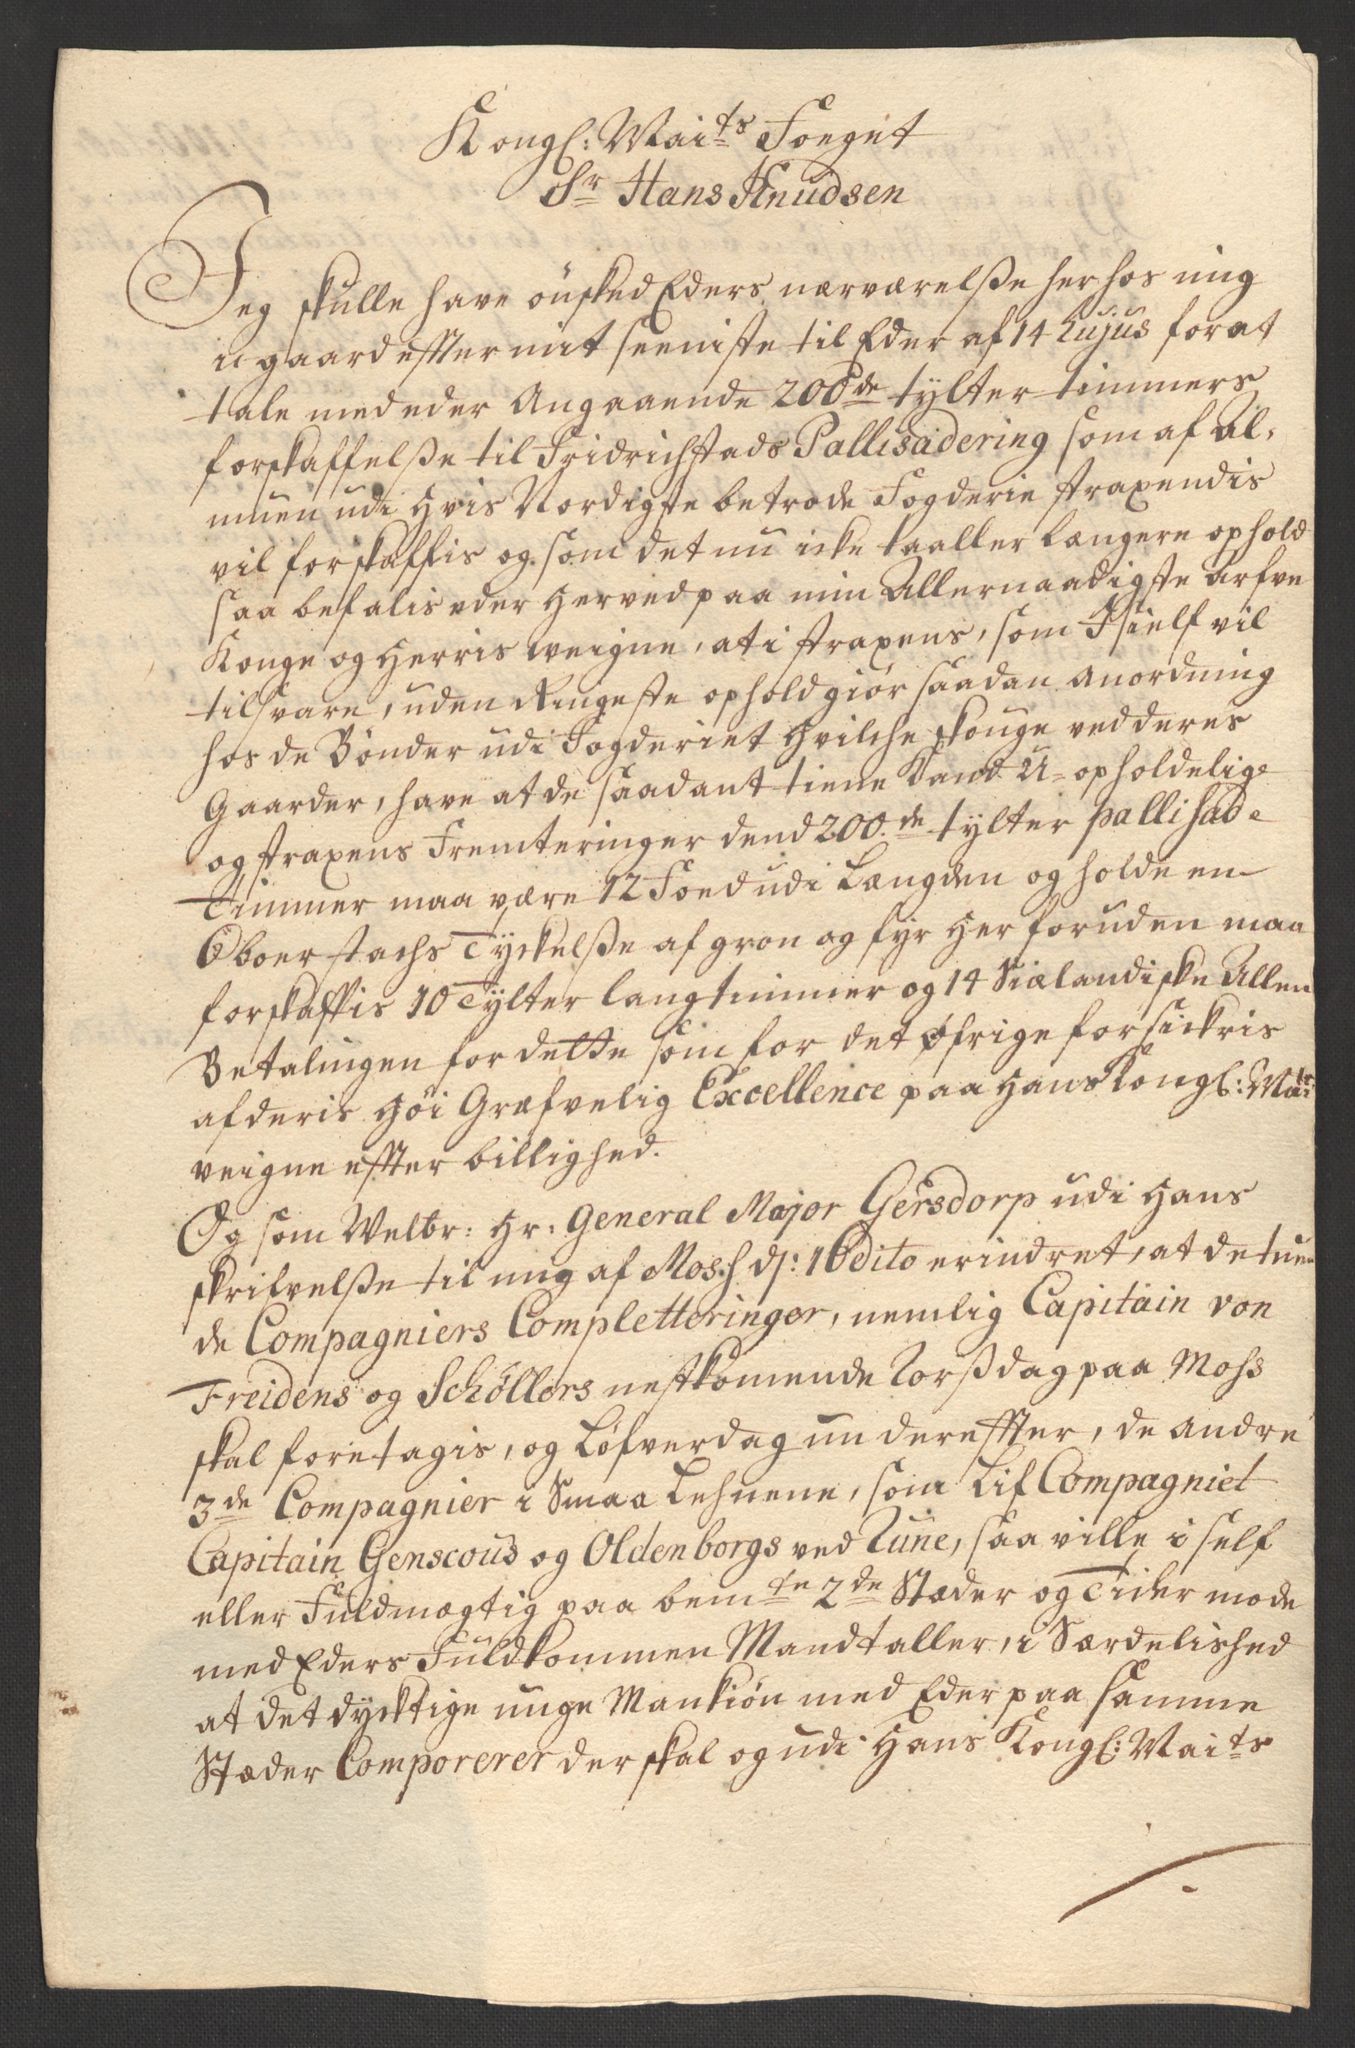 Kongl: Mai:ts Foeget
Sr Hans Knudsen
Jeg skulle have ønsked Eders nærværelsse her hos mig
i gaard effter mit seeniste til Eder af 14 hujus for at
tale med eder Angaaende 200de tylter timmers
forskaffelsse til Fridrichstads Pallisadering som af Al-
muen udi hvis Nordigste betrode Fogderie straxendis
vil forskaffis og som det nu icke taaller længere ophold
saa befalis eder herved paa min Allernaadigste Arfve
Konge og Herris veigne, at i straxens, som I sielf vil
tilsvare, uden Ringeste ophold giør saadan anordning
hos de Bønder udi Fogderiet hvilche skouge ved deres
Gaarder, have at de saadant tiene kand U-opholdelige
og straxens Fremkeringer dend 200de tylter pallisade
Timmer maa være 12 Foed udi Længden og holde en
Oboerstachs Tyckelsse af gron og fyr her foruden maa
forskaffis 10 Tylter langtimmer og 14 Siælandiske Allen
Betalingen for dette som for det øfrige forsickris
af deris Høi Græfvelig Excellence paa Hans Kongl: Maits
veigne effter billighed.
Og som Welbr: Hr: General Major Gersdorp udi Hans
skrifvelsse til mig af Moss dj: 10 dito erindret, at de tven
de Compagniers Completteringer, nemlig Capitain von
Freidens og Schöllers nestkomende Torssdag paa Moss
skal foretagis, og Løfverdagen dereffter, de andre
3de Compagnier i Smaa Lehnene, som Lif Compagniet
Capitain Genscous og Oldenborgs ved Tune, saa ville i self
eller Fuldmægtig paa bemte 2de Stæder og Tider møde
med Eders Fuldkommen Mandtaller, i Særdelished
at det dycktige unge Mankiøn med Eder paa samme
Stæder Comporerer der skal og udi Hans Kongl: Maits